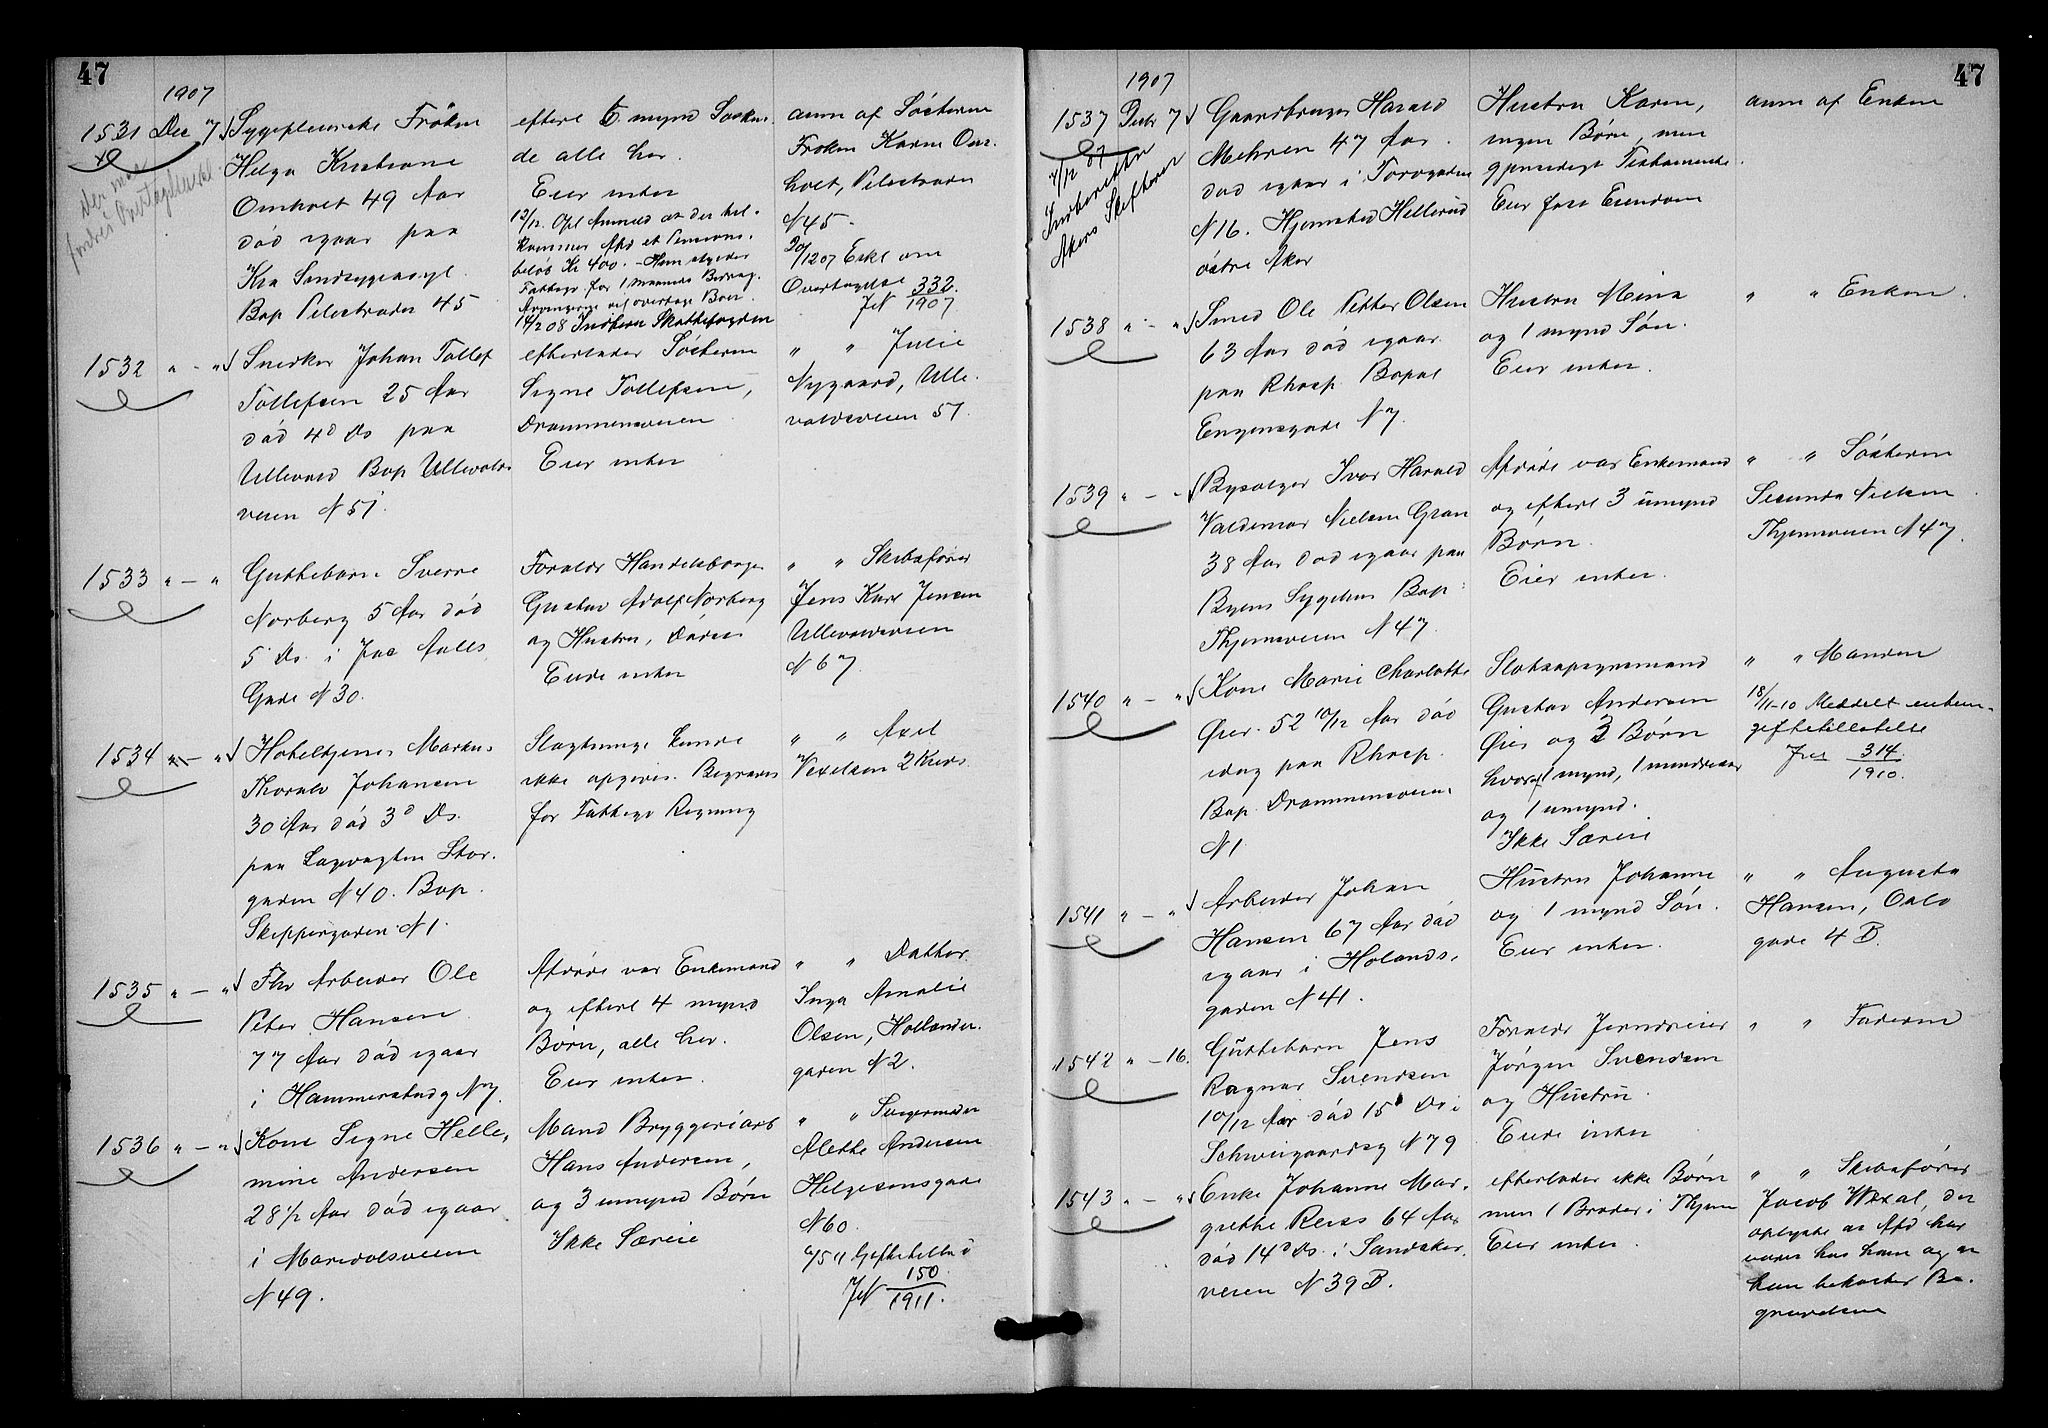 47
1907
1531 Dec 7
Sygepleierske Frøken
Helga Kristiane
Omholt 49 Aar
død igaar paa
Kra Sindsygeasyl.
Bop Pilestrædet 45
efterl 6 mynd Søsken-
de alle her.
Eier intet
12/12. Opl Anmeld at der til-
kommer Afd et Pensions-
beløb Kr 400. -
Fattigv. for 1 Maaneds Bidrag.
14/2 08 Indberu Skattefogden
anm af Søsteren
Frøken Karen Om-
holt, Pilestrædet
N 45
20/12 07 Erkl om
Overtagelse 332
JN 1907
1532 " - "
Snedker Johan Tollef
Tollefsen 25 Aar
død 4d Ds paa
Ullevaal Bop Ullevolds
veien N 51
efterlader Søsteren
Signe Tollefsen,
Drammensveien
Eier intet
" " Julie
Nygaard, Ulle-
voldsveien 51.
1533 " - "
Guttebarn Sverre
Norberg 5 Aar død
5 Ds. i Jac Aalls
Gade N 30.
Forældr Handelsborger
Gustav Adolf Norberg
og Hustru, Døren
Eiede intet
" " Skibsfører
Jens Karl Jensen
Ullevoldsveien
N 67.
1534 " - "
Hoteltjener Markus
Thorvald Johansen
30 Aar død 3d Ds.
paa Lægevagten Stor-
gaden N 40. Bop.
Skippergaden N 1.
Slægtninge kunde
ikke opgives. Begraves
for Fattigv Regning
" " Axel
Vexelsen 2 Kreds
1535 " - "
Fhv Arbeider Ole
Peter Hansen
77 Aar død igaar
i Hammersbadg N 7.
Afdøde var Enkemand
og efterl 4 mynd
Børn, alle her.
Eier intet.
" " Datter
Inga Amalie
Olsen, Hollender-
gaden N 2.
1536 " - "
Kone Signe Helle-
mine Andersen
28 1/2 Aar død igaar
i Maridalsveien
N 49.
Mand Bryggeriarb
Hans Andersen,
og 3 umynd Børn
Ikke Særeie
" " Svigermoder
Alette Andersen
Helgesensgade
N 60.
4/5 11 Giftetilla i
JN 150
1911.
47
1907
1537 Decbr 7
7/12 07
Indberettet
Akers Skifteret
Gaardbruger Harald
Mehren 47 Aar.
død igaar i Torvgaden
N 16. Hjemsted Hellerud
østre Aker
Hustru Karen,
ingen Børn, men
gjensidigt Testamente.
Eier fast Eiendom
anm af Enken
1538 " - "
Smed Ole Petter Olsen
63 Aar død igaar
paa Rhosp. Bopæl
Enqensgade N 7.
Hustru Mina
og 1 mynd Søn.
Eier intet.
" " Enken
1539 " - "
Bysælger Ivar Harald
Valdemar Nielsen Gran
38 Aar død igaar paa
Byens Sygehus Bop:
Thjemsveien N 47.
Afdøde var Enkemand
og efterl 3 umynd
Børn.
Eier intet.
" " Søsteren
Secunda Nielsen
Thjemsveien N 47.
1540 " - "
Kone Marie Charlotte
Øier. 52 10/12 Aar død
idag paa Rhosp.
Bop Drammensveien
N 1
Slotsopsynsmand
Gustav Andersen
Øier og 3 Børn
hvoraf 1 mynd, 1 mindreaar
og 1 umynd.
Ikke Særeie
" " Manden
18/11-10 Meddelt enkem-
giftetilladelse
Jnr 314
1910.
1541 " - "
Arbeider Johan
Hansen 67 Aar død
igaar i Hølands-
gaden N 41.
Hustru Johanne
og 1 mynd Søn.
Eier intet.
" " Augusta
Hansen, Oslo
gade 4 B.
1542 " - 16.
Guttebarn Jens
Ragnar Svendsen
10/12 Aar død 15d Ds i
Schweigaardsg N 79
Forældr Jerndreier
Jørgen Svendsen
og Hustru.
Eiede intet
" " Faderen
1543 " - "
Enke Johanne Mar-
grethe Reiss 64 Aar
død 14d Ds. i Sandaker-
veien N 39 B.
efterlader ikke Børn
men 1 Broder i Thjem
Eier intet.
" " Skibsfører
Jacob Wexal, der
oplyste at Afd. har
været hos ham og at
han bekoster Be-
gravelsen